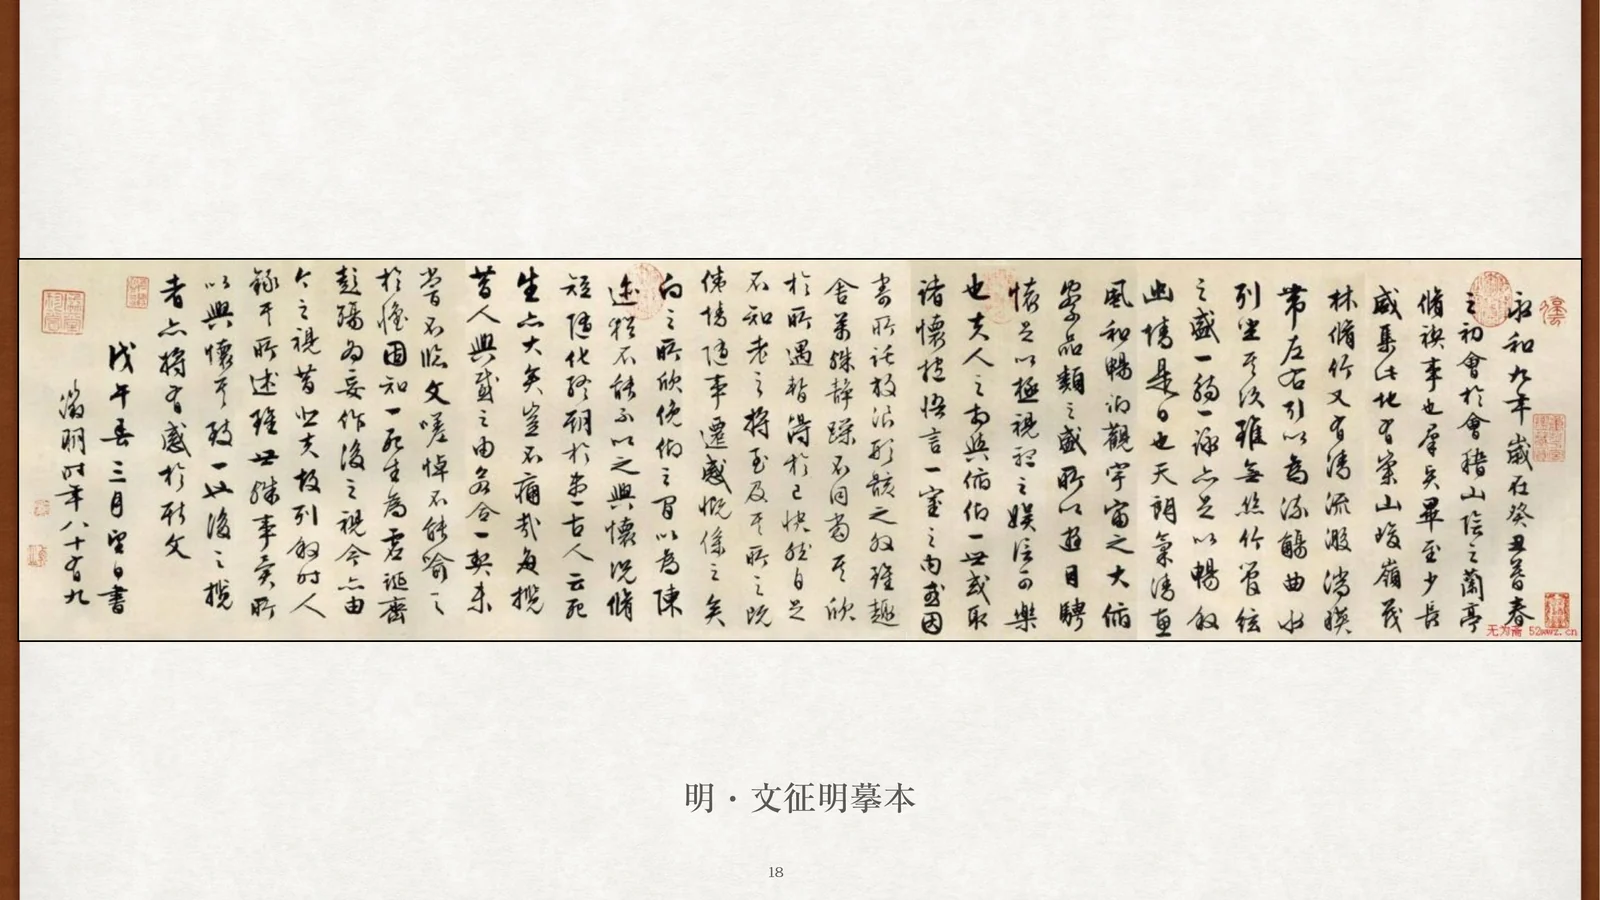 永和九年歲在癸丑暮春
之初會於會稽山陰之蘭亭
脩禊事也羣賢畢至少長
咸集此地有崇山峻嶺茂
林脩竹又有清流激湍暎
帶左右引以為流觴曲水
列坐其次雖無絲竹管絃
之盛一觴一詠亦足以暢敘
幽情是日也天朗氣清惠
風和暢仰觀宇宙之大俯
察品類之盛所以遊目騁
懷足以極視聽之娛信可樂
也夫人之相與俯仰一世或取
諸懷抱悟言一室之內或因
寄所託放浪形骸之外雖趣
舍萬殊靜躁不同當其欣
於所遇暫得於己快然自足
不知老之將至及其所之既
倦情隨事遷感慨係之矣
向之所欣俛仰之間以為陳
迹猶不能不以之興懷況脩
短隨化終期於盡古人云死
生亦大矣豈不痛哉每攬
昔人興感之由若合一契未
嘗不臨文嗟悼不能喻之
於懷固知一死生為虛誕齊
彭殤為妄作後之視今亦由
今之視昔悲夫故列敘時人
錄其所述雖世殊事異所
以興懷其致一也後之攬
者亦將有感於斯文
戊午春三月望日書
徵明時年八十有九
无为斋 52wwz.cn
明·文征明摹本
18